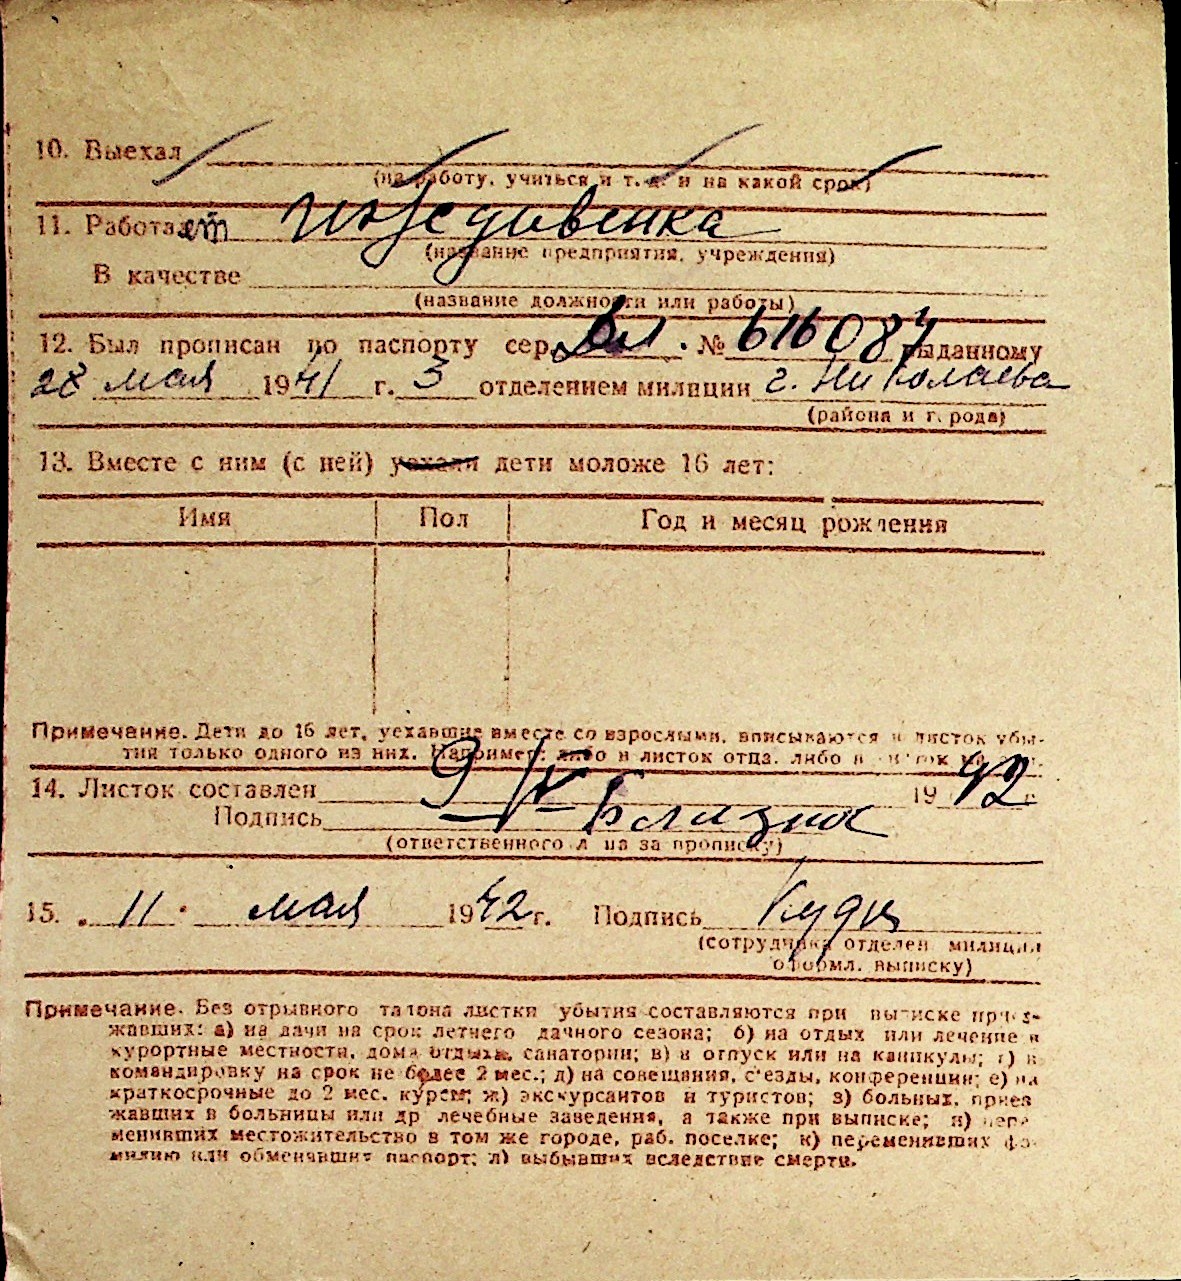 10. Выехал
(на работу, учиться и т. д. и на какой срок)
11. Работает иждивенка
(название предприятия, учреждения)
В качестве
(название должности или работы)
12. Был прописан по паспорту сер. № 616087 выданному
28 мая 1941 г. 3 отделением милиции г. Николаева
(района и города)
13. Вместе с ним (с ней) уехали дети моложе 16 лет:
Имя Пол Год и месяц рождения
Примечание. Дети до 16 лет, уехавшие вместе со взрослыми, вписываются в листок убы-
тия только одного из них. Например: либо в листок отца, либо в листок
14. Листок составлен 9/V 1942 г.
Подпись
(ответственного лица за прописку)
15. 11 мая 1942 г. Подпись
(сотрудника отделен милиции
оформл. выписку)
Примечание. Без отрывного талона листки убытия составляются при выписке приез-
жавших: а) на дачи на срок летнего дачного сезона; б) на отдых или лечение в
курортные местности, дома отдыха, санатории; в) в отпуск или на каникулы; г) в
командировку на срок не более 2 мес.; д) на совещания, с'езды, конференции; е) на
краткосрочные до 2 мес. курсы; ж) экскурсантов и туристов; з) больных, приез
жавших в больницы или др лечебные заведения, а также при выписке; и) пере-
менивших местожительство в том же городе, раб. поселке; к) переменивших фа-
милию или обменявших паспорт; л) выбывших вследствие смерти.